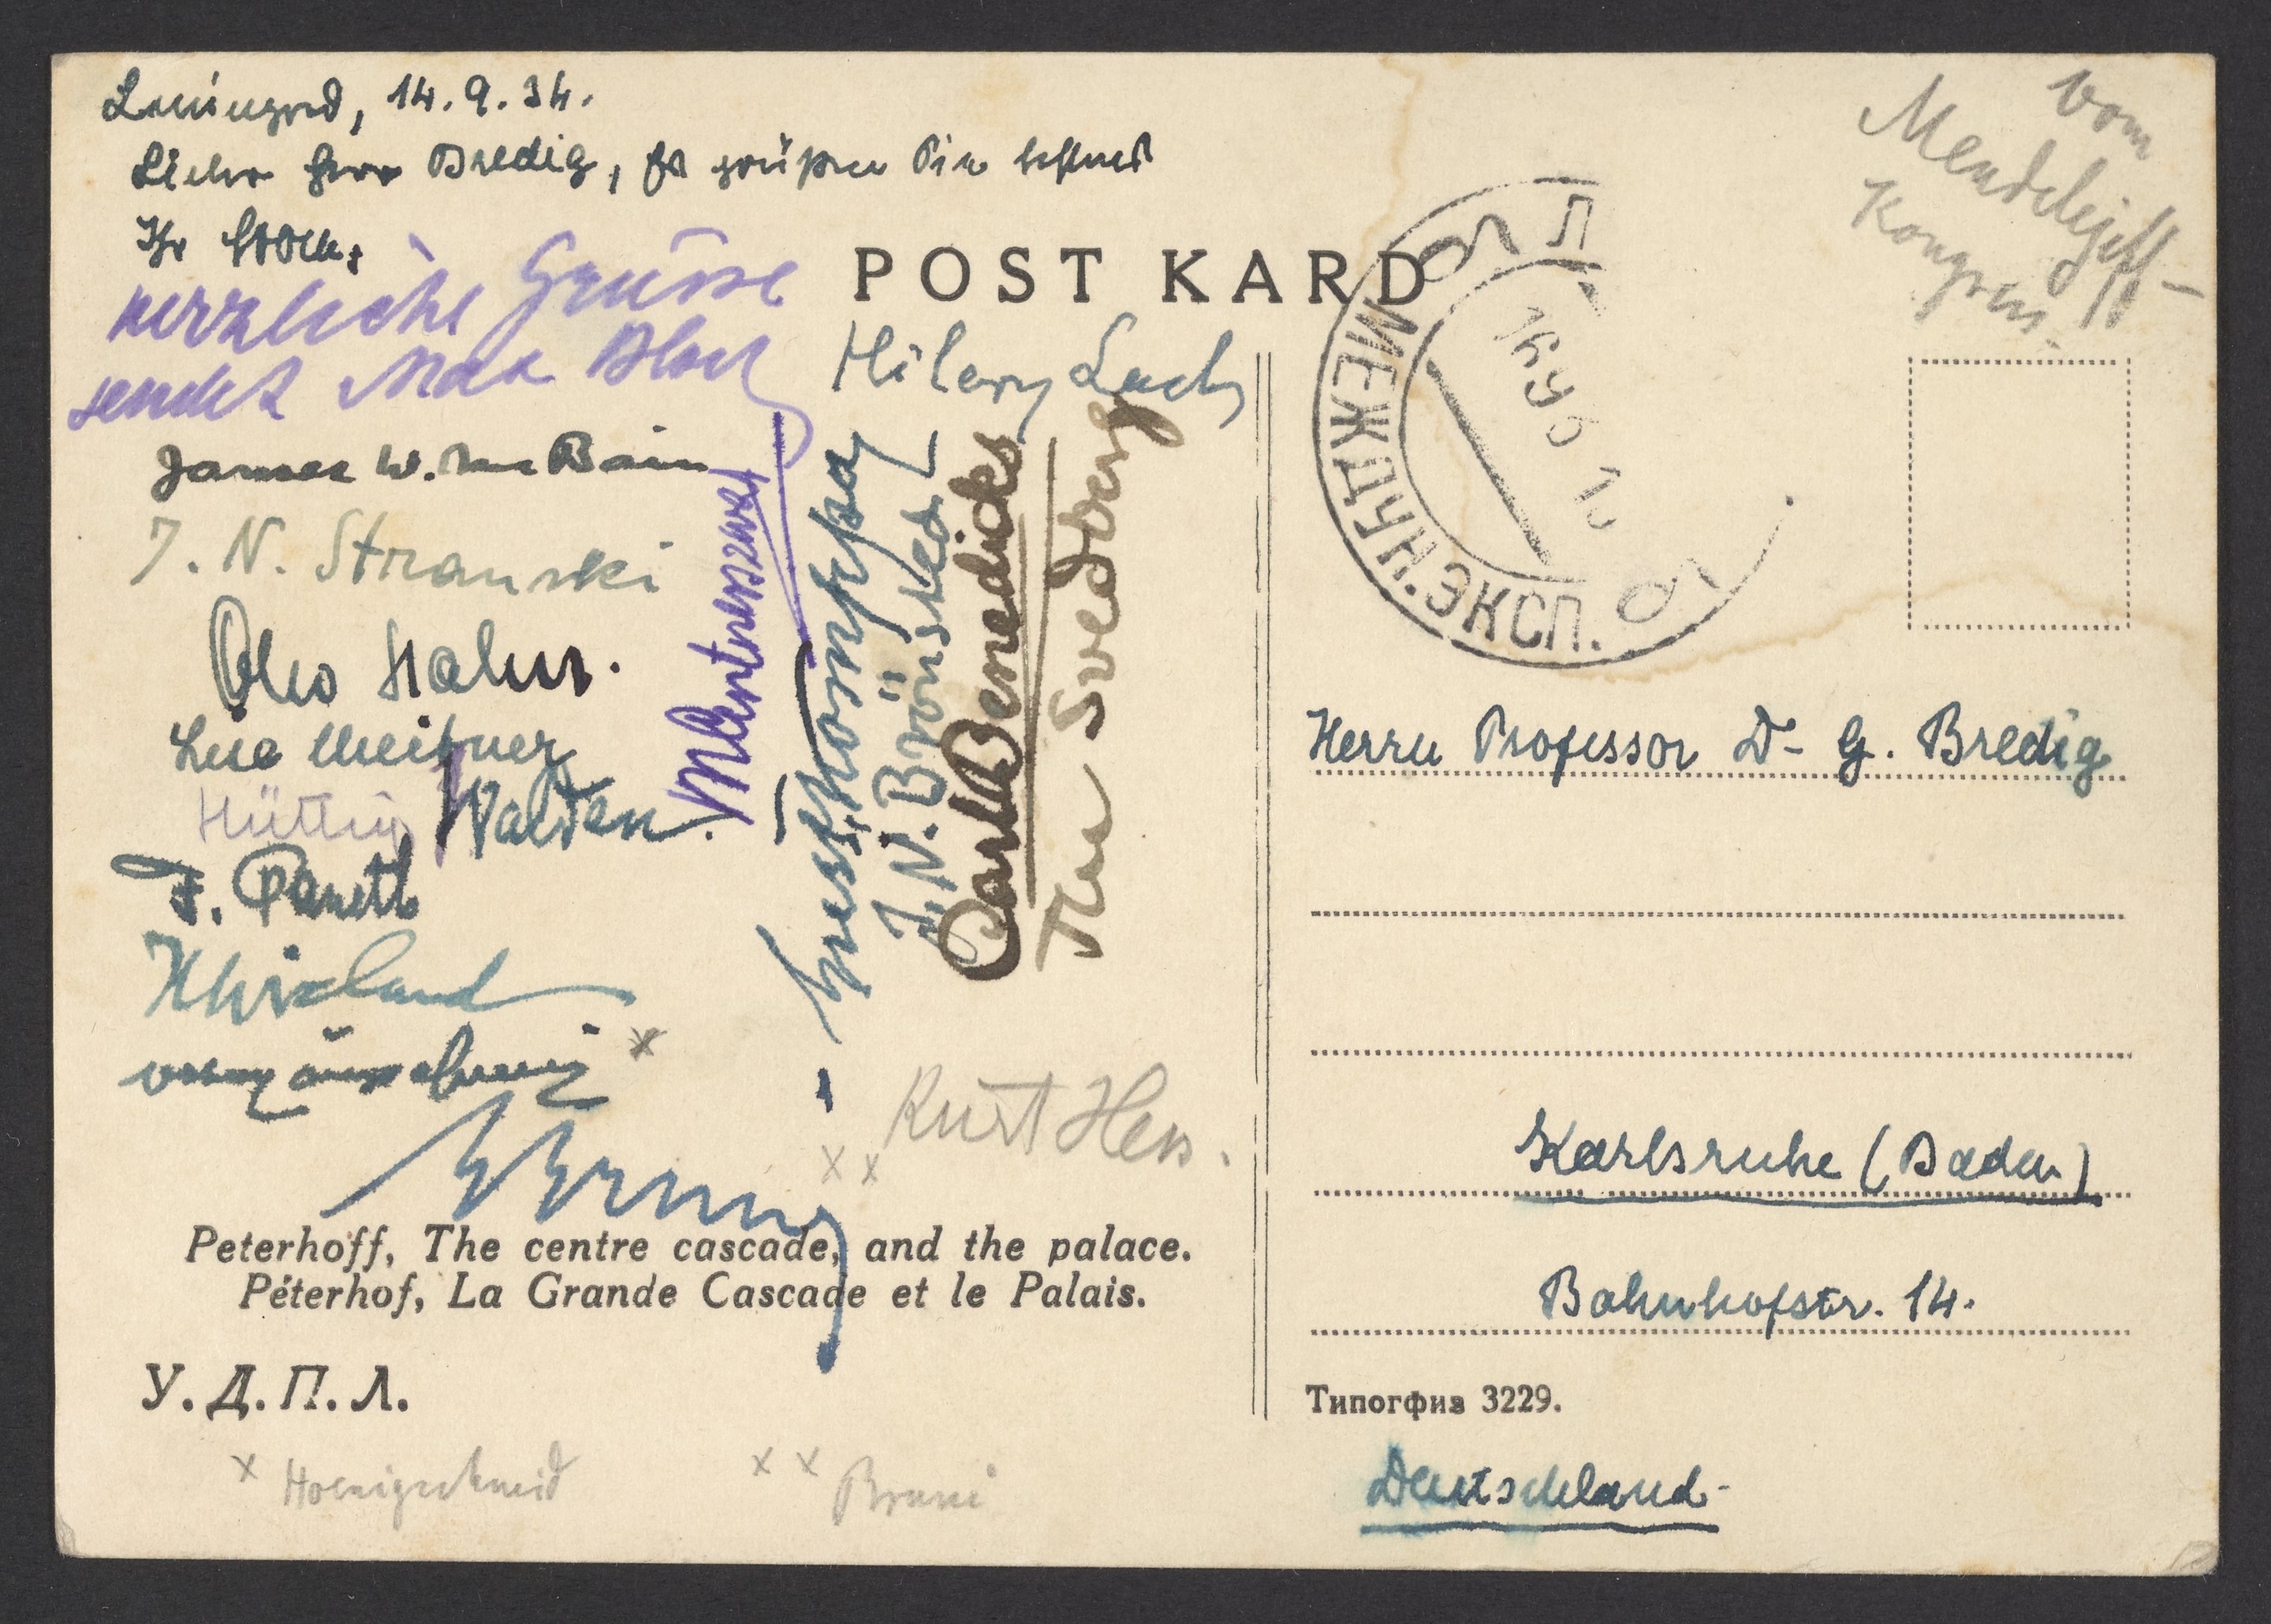 Leningrad, 14.9.34.
Lieber Herr Bredig, Es grüßen Sie bestens
Ihr Stock,
herzliche Grüsse
sendet Max
James W. McBain
I. N. Stranski
Otto Hahn.
Lise Meitner
Hüttig Walden.
F. Paneth
H Wieland
MCentnerszwer
J. N. Brönsted
Carl Benedicks
The Svedberg
Hilary Lach
Kurt Hess.
POST KARD
МЕЖДУН. ЭКСП.
vom
Mendelejeff-
Kongress.
Herrn Professor Dr G. Bredig
Karlsruhe (Baden)
Bahnhofstr. 14.
Deutschland
Peterhoff, The centre cascade, and the palace.
Péterhof, La Grande Cascade et le Palais.
У. Д. П. Л.
Типогфиз 3229.
x Hoenigschmid
x x Bruni